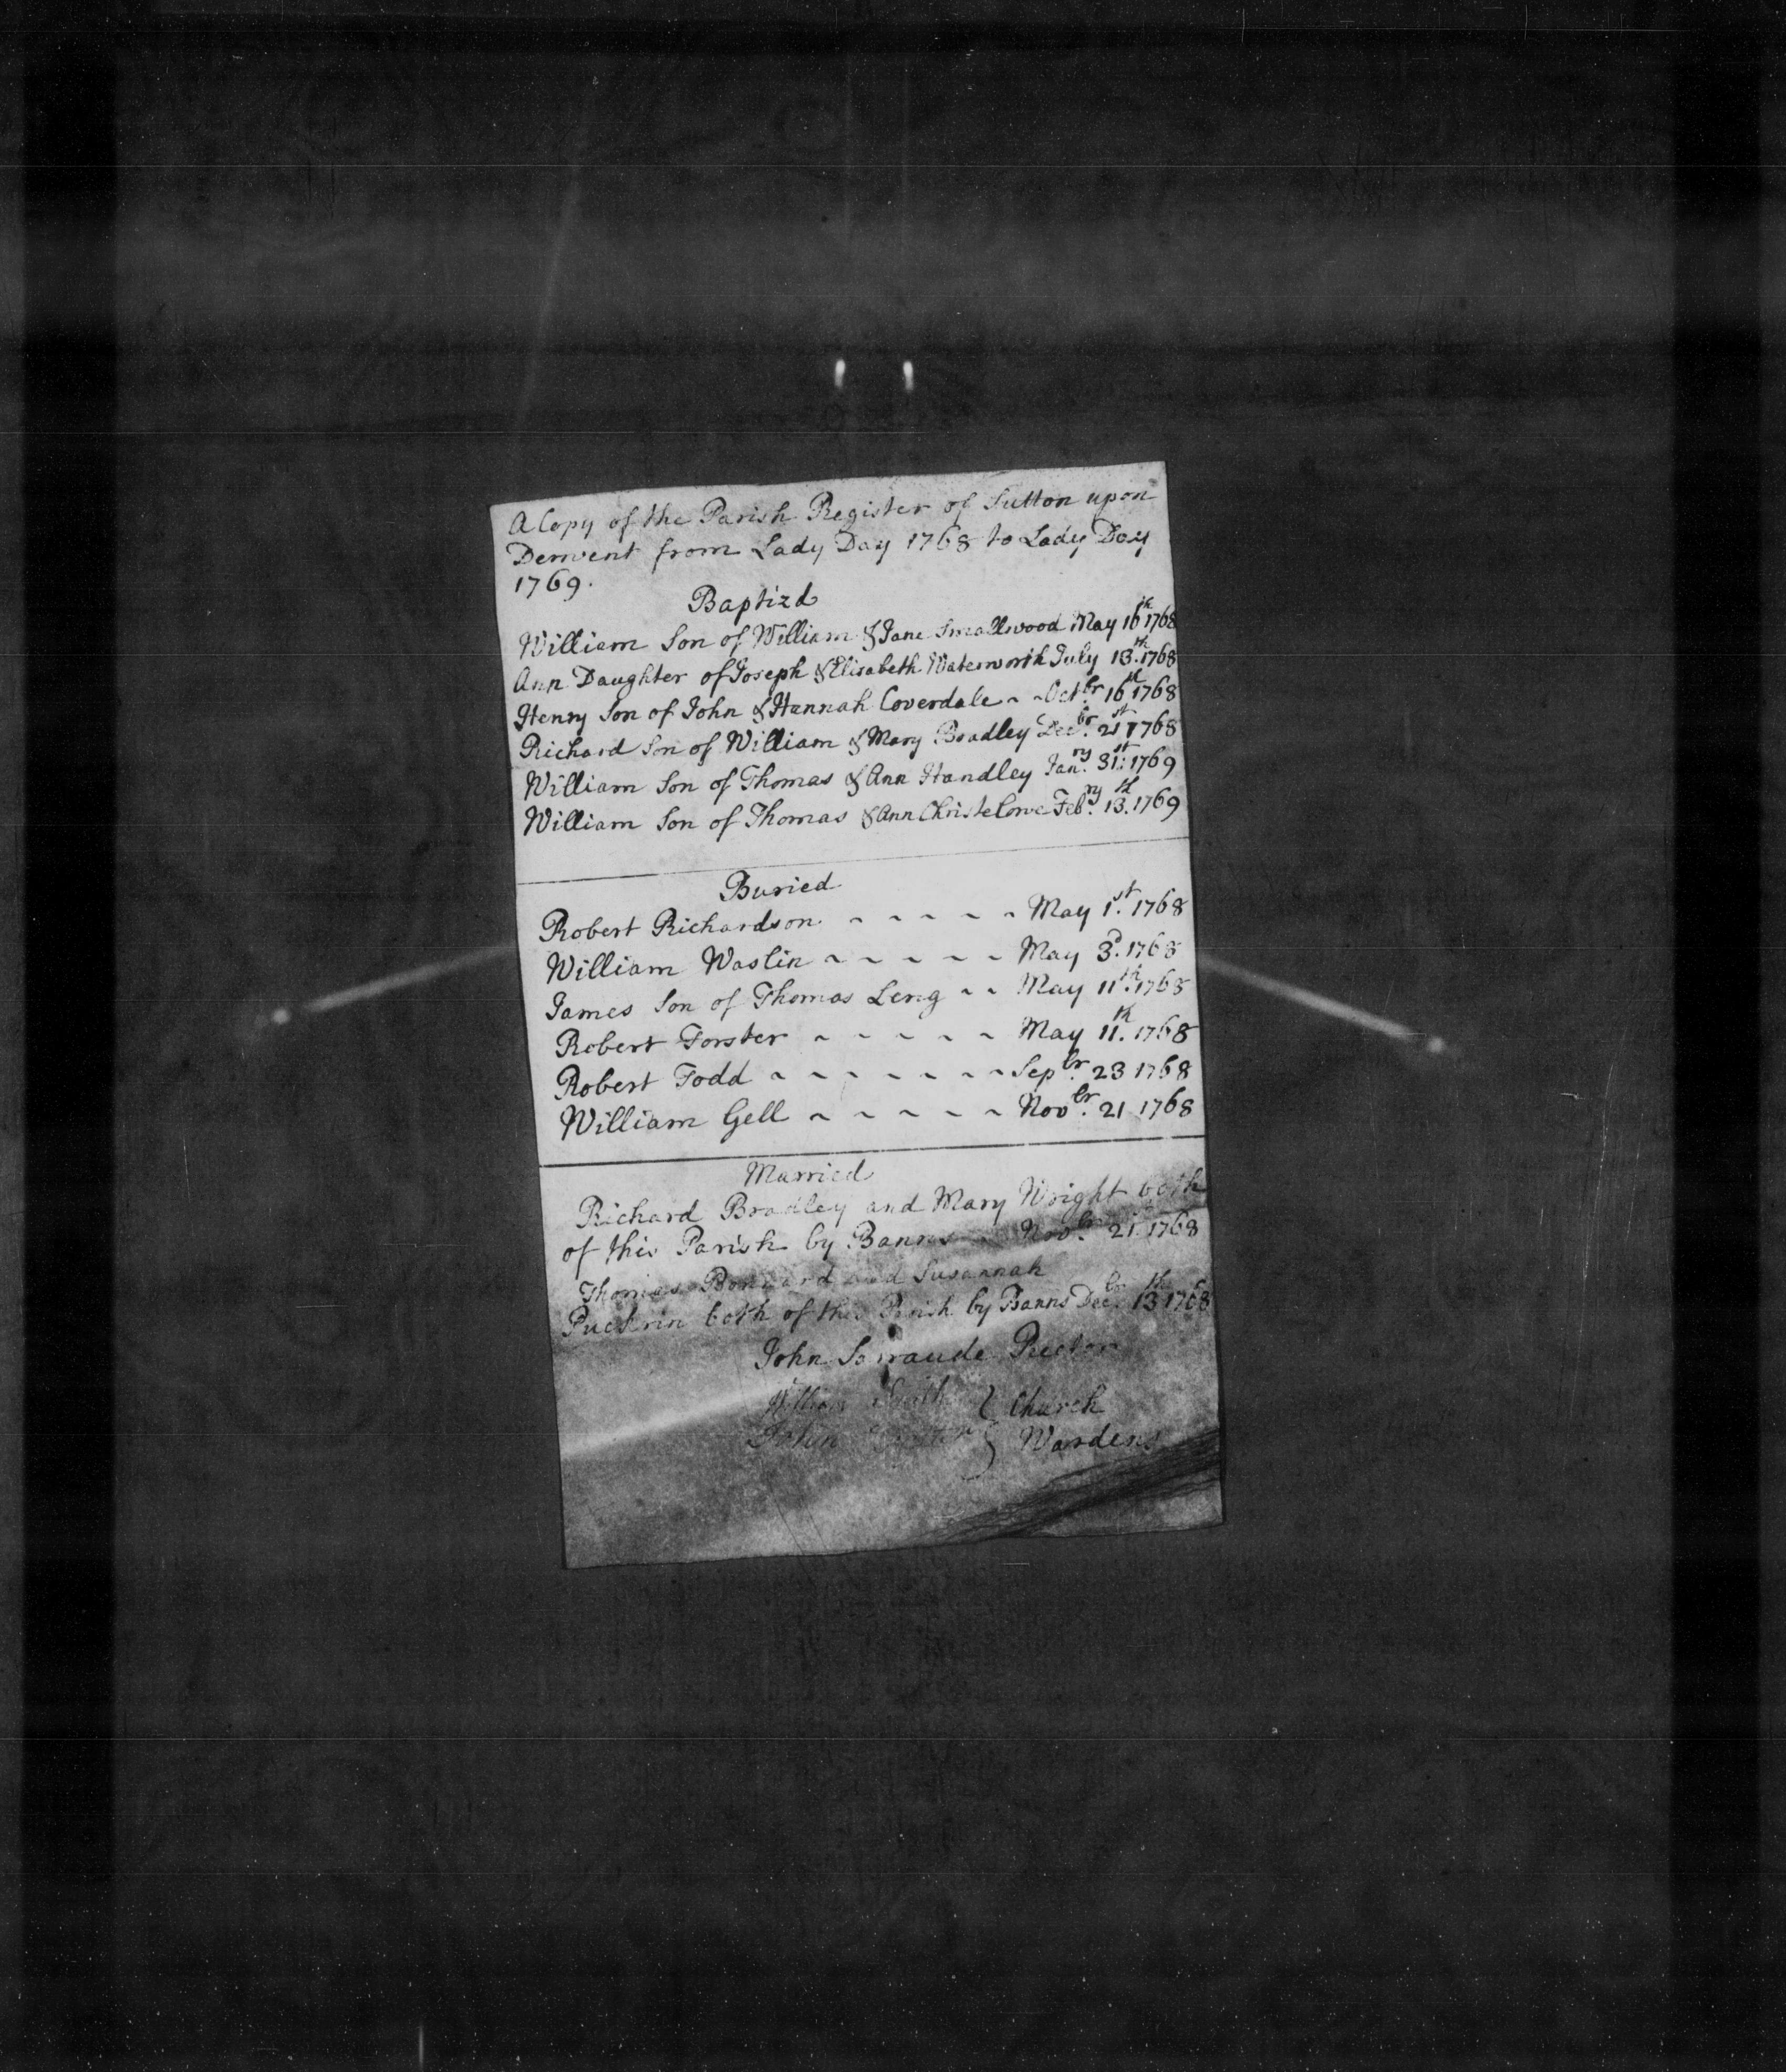 A Copy of the Parish Register of Sutton upon
Derwent from Lady Day 1768 to Lady Day
1769.
Baptizd
William Son of William & Jane Smallwood May 16th 1768
Ann Daughter of Joseph & Elisabeth Waterworth July 13th. 1768
Henry Son of John & Hannah Coverdale ~ ~ Octbr 16th 1768
Richard Son of William & Mary Bradley Decbr. 21st 1768
William Son of Thomas & Ann Handley Janry. 31st. 1769
William Son of Thomas & Ann Christelowe Febry. 13th. 1769
Buried
Robert Richardson ~ ~ ~ ~ ~ May 1st. 1768
William Waslin ~ ~ ~ ~ ~ May 3d. 1768
James Son of Thomas Leng ~ ~ May 11th. 1768
Robert Forster ~ ~ ~ ~ ~ May 11th. 1768
Robert Todd ~ ~ ~ ~ ~ ~ ~ Sepbr. 23 1768
William Gell ~ ~ ~ ~ ~ Novbr. 21 1768
Married
Richard Bradley and Mary Wright both
of this Parish by Banns Novbr. 21st. 1768
Thomas and Susannah
Puckrin both of this Parish by Banns Decbr. 13th 1768
John Rector
William Smith } Church
John } Wardens